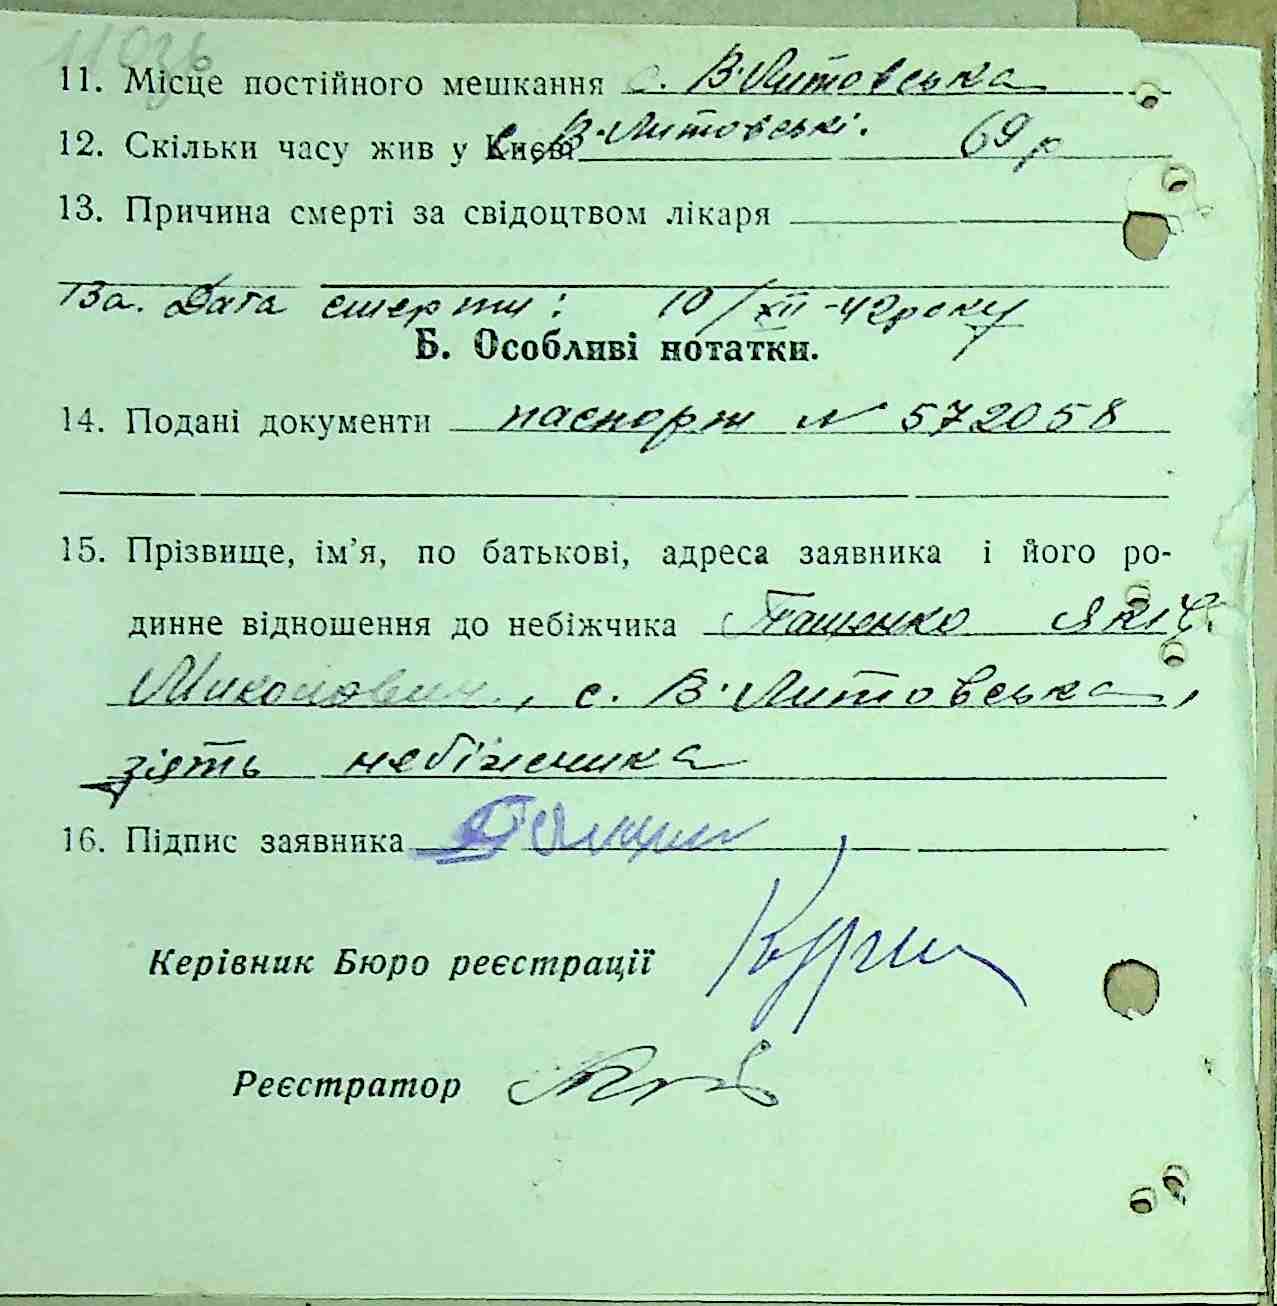 11. Місце постійного мешкання с. В-Литовська
12. Скільки часу жив у Києві с. В-Литовські. 69 р
13. Причина смерті за свідоцтвом лікаря
13а. Дата смерти: 10/XII-42 року
Б. Особливі нотатки.
14. Подані документи паспорт N 572058
15. Прізвище, ім’я, по батькові, адреса заявника і його ро-
динне відношення до небіжчика Пащенко Яків
Миколович, с. В-Литовська,
зять небіжчика
16. Підпис заявника
Керівник Бюро реєстрації
Реєстратор